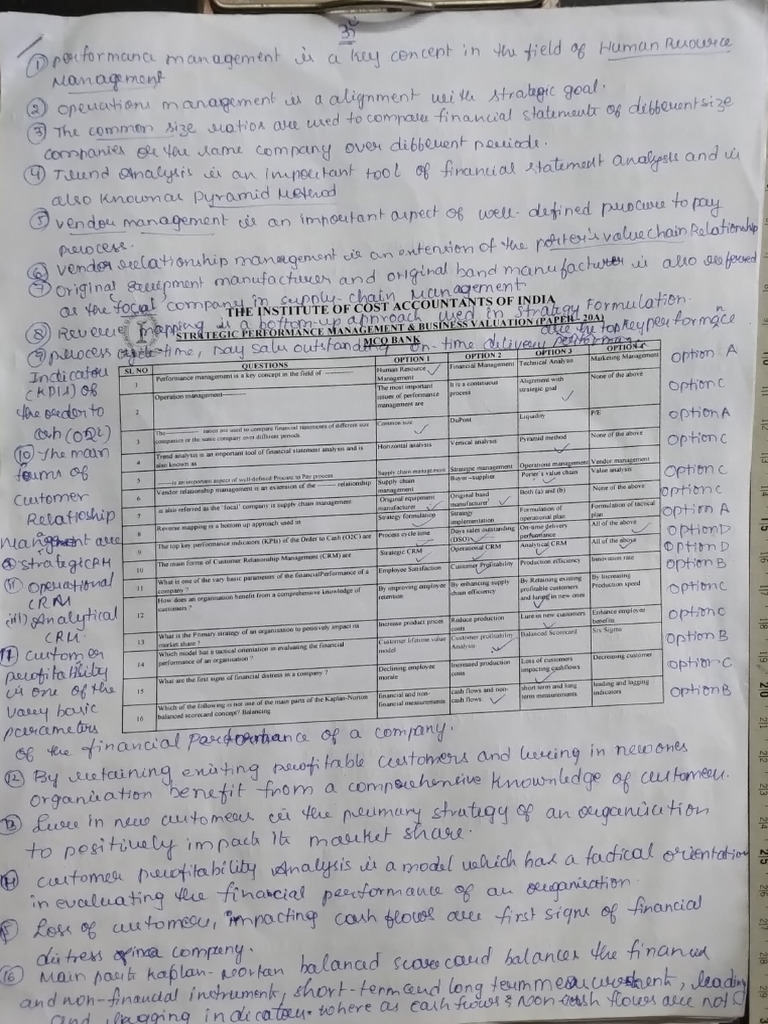 ॐ
① performance management is a key concept in the field of Human Resource
Management
② operations management is a alignment with strategic goal.
③ The common size ratios are used to compare financial statements of different size
companies or the same company over different periods.
④ Trend Analysis is an important tool of financial statement analysis and is
also known as Pyramid Method
⑤ vendor management is an important aspect of well-defined procure to pay
process.
⑥ vendor relationship management is an extension of the porter's value chain Relationship
⑦ original equipment manufacturer and original band manufacturer is also referred
as the focal company in supply-chain management
THE INSTITUTE OF COST ACCOUNTANTS OF INDIA
⑧ Reverse mapping is a bottom-up approach used in strategy formulation.
STRATEGIC PERFORMANCE MANAGEMENT & BUSINESS VALUATION (PAPER- 20A)
MCQ BANK
⑨ process cycle-time, Day sales outstanding on-time delivery performance are the top key performance
Indicators
(KPIs) of
the order to
cash (O2C)
⑩ The main
forms of
Customer
Relatioship
management are
i) strategic CRM
ii) Operational
CRM
iii) Analytical
CRM
11 customer
profitability
is one of the
vary basic
parameters
SL NO QUESTIONS OPTION 1 OPTION 2 OPTION 3 OPTION 4
1 Performance management is a key concept in the field of ---------- Human Resource Management Financial Management Technical Analysis Marketing Management option A
2 Operation management-------- The most important issues of performance management are It is a continuous process Alignment with strategic goal None of the above option C
3 The---------- ratios are used to compare financial statements of different size companies or the same company over different periods Common size DuPont Liquidity P/E option A
4 Trend analysis is an important tool of financial statement analysis and is also known as Horizontal analysis Vertical analysis Pyramid method None of the above option C
5 ------ is an important aspect of well-defined Procure to Pay process Supply chain management Strategic management Operations management Vendor management option C
6 Vendor relationship management is an extension of the ------ relationship Supply chain management Buyer –supplier Porter's value chain Value analysis option C
7 is also referred as the 'focal' company is supply chain management Original equipment manufacturer Original band manufacturer Both (a) and (b) None of the above option A
8 Reverse mapping is a bottom up approach used in Strategy formulation Strategy implementation Formulation of operational plan Formulation of tactical plan option D
9 The top key performance indicators (KPIs) of the Order to Cash (O2C) are Process cycle time Days sales outstanding (DSO) On-time delivery performance All of the above option D
10 The main forms of Customer Relationship Management (CRM) are Strategic CRM Operational CRM Analytical CRM All of the above option B
11 What is one of the vary basic parameters of the financialPerformance of a company ? Employee Satisfaction Customer Profitability Production efficiency Innovation rate option C
12 How does an organisation benefit from a comprehensive knowledge of customers ? By improving employee retention By enhancing supply chain efficiency By Retaining existing profitable customers and luring in new ones By Increasing Production speed option C
13 What is the Primary strategy of an organisation to positively impact its market share ? Increase product prices Reduce production costs Lure in new customers Enhance employee benefits option B
14 Which model has a tactical orientation in evaluating the financial performance of an organisation ? Customer lifetime value model Customer profitability Analysis Balanced Scorecard Six Sigma option C
15 What are the first signs of financial distress in a company ? Declining employee morale Increased production costs Loss of customers impacting cashflows Decreasing customer option B
16 Which of the following is not use of the main parts of the Kaplan-Norton balanced scorecard concept? Balancing financial and non-financial measurements cash flows and non-cash flows short term and long term measurements leading and lagging indicators
of the financial Performance of a company.
12 By retaining existing profitable customers and luring in new ones
organisation benefit from a comprehensive knowledge of customers.
13 Lure in new customers is the primary strategy of an organisation
to positively impact its market share.
14 customer profitability Analysis is a model which has a tactical orientation
in evaluating the financial performance of an organisation.
15 Loss of customers, impacting cash flows are first signs of financial
distress in a company.
16 Main parts kaplan-Nortan balanced scorecard balances the financial
and non-financial instruments, short-term and long term measurements, leading
and lagging indicators where as cash flows & Non-cash flows are not